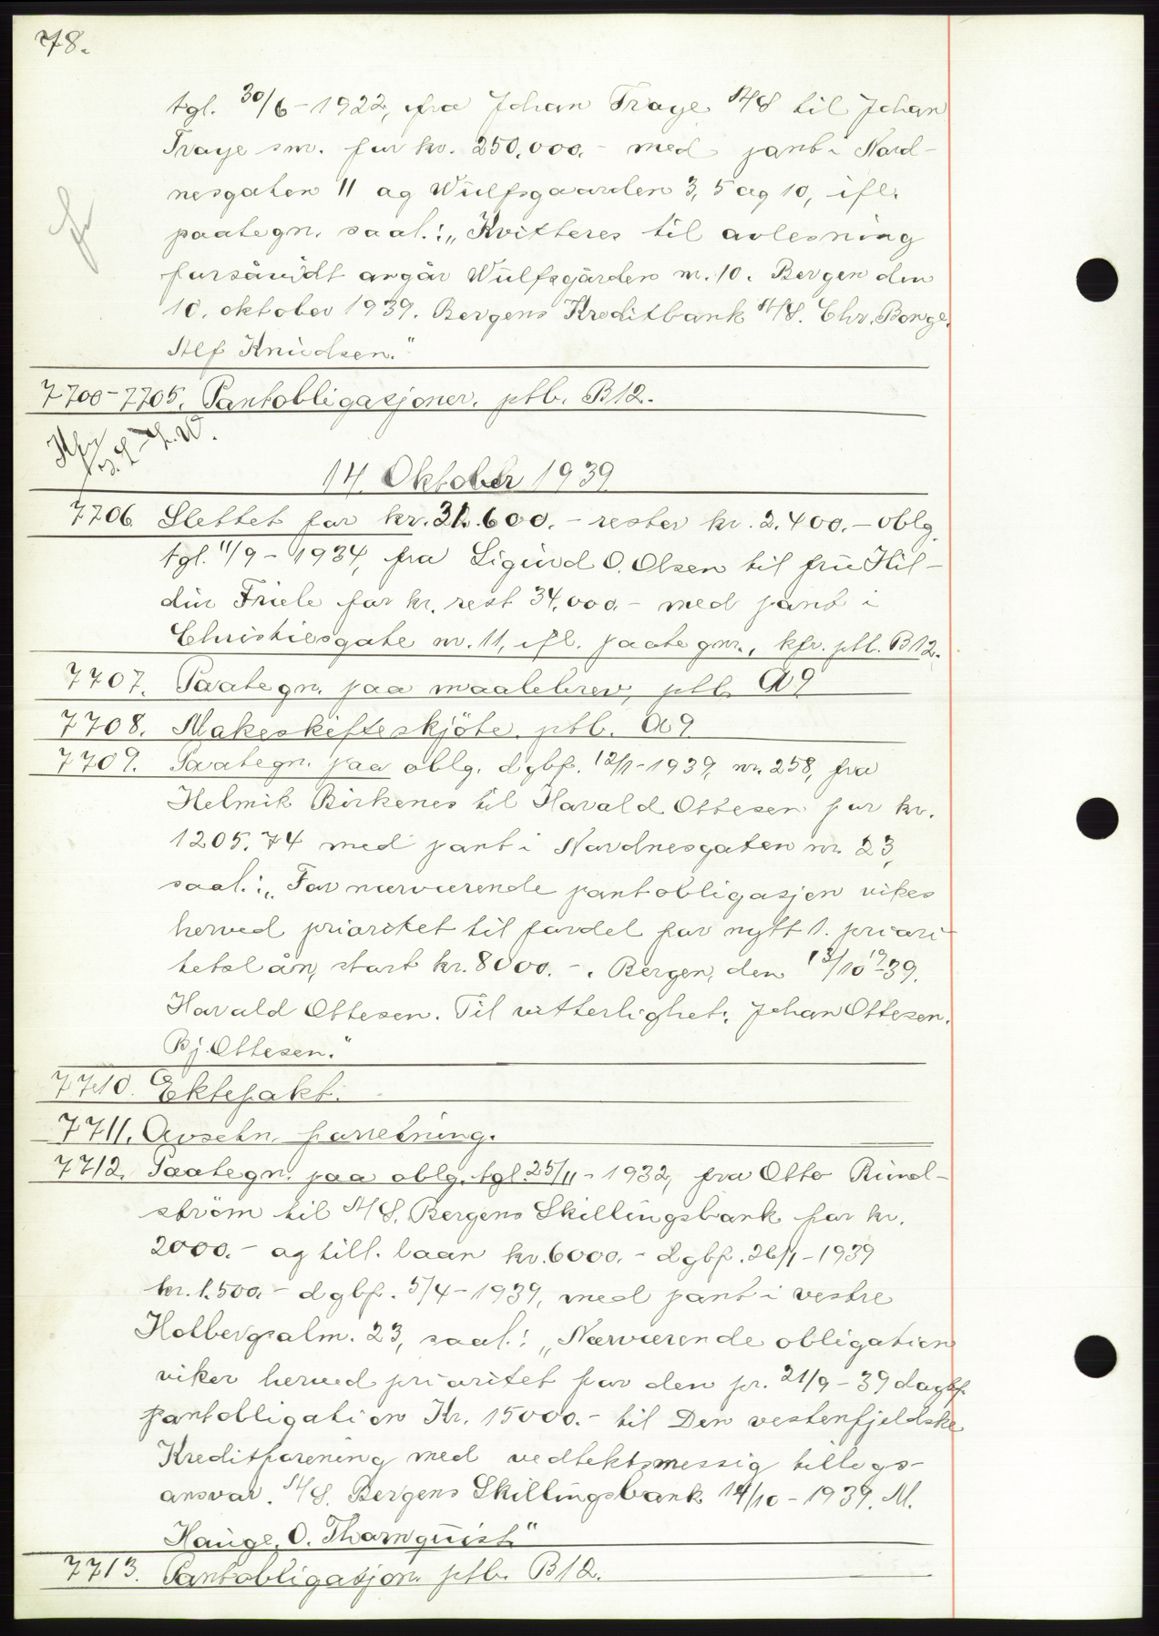 78.
tgl. 30/6 - 1922, fra Johan Traye A/S til Johan
Traye sm. for kr. 250.000.- med pant i Nord-
nesgaten 11 og Wulfsgaarden 3, 5 og 10, ifl.
paategn. saal.: „Kvitteres til avlesning
forsåvidt angår Wulfsgården nr. 10. Bergen den
10. oktober 1939. Bergens Kreditbank A/S. Chr. Bonge.
Alf Knudsen."
7700-7705. Pantobligasjoner. ptb. B12.
14. Oktober 1939
7706 Slettet for kr. 31.600.- rester kr. 2.400.- oblg.
tgl. 11/9 - 1934, fra Sigurd O. Olsen til fru Hil-
dur Friele for kr. rest 34.000.- med pant i
Christiesgate nr. 11, ifl. paategn., kfr. ptb. B12.
7707. Paategn. paa maalebrev, ptb. A9
7708. Makeskifteskjöte. ptb. A9.
7709. Paategn. paa oblg. dgbf. 12/1 - 1939, nr. 258, fra
Helmik Birkenes til Harald Ottesen for kr.
1205.74 med pant i Nordnesgaten nr. 23,
saal.: „For nærværende pantobligasjon vikes
herved prioritet til fordel for nytt 1. priori-
tetslån, stort kr. 8000.-. Bergen, den 13/10 19-39.
Harald Ottesen. Til vitterlighet: Johan Ottesen.
Bj. Ottesen."
7710. Ektepakt.
7711. Avsetn. forretning.
7712. Paategn. paa oblg. tgl. 25/11 - 1932, fra Otto Rund-
ström til A/S. Bergens Skillingsbank for kr.
2000.- og till. laan kr. 6000.- dgbf. 26/1 - 1939
kr. 1.500.- dgbf. 5/4 - 1939, med pant i vestre
Holbergsalm. 23, saal.: „Nærværende obligation
viker herved prioritet for den pr. 21/9 - 39 dagbf.
pantobligation Kr. 15000.- til Den vestenfjeldske
Kreditforening med vedtektsmessig tillegs-
ansvar. A/S. Bergens Skillingsbank 14/10 - 1939. M.
Hauge. O. Thornquist"
7713. Pantobligasjon. ptb. B12.